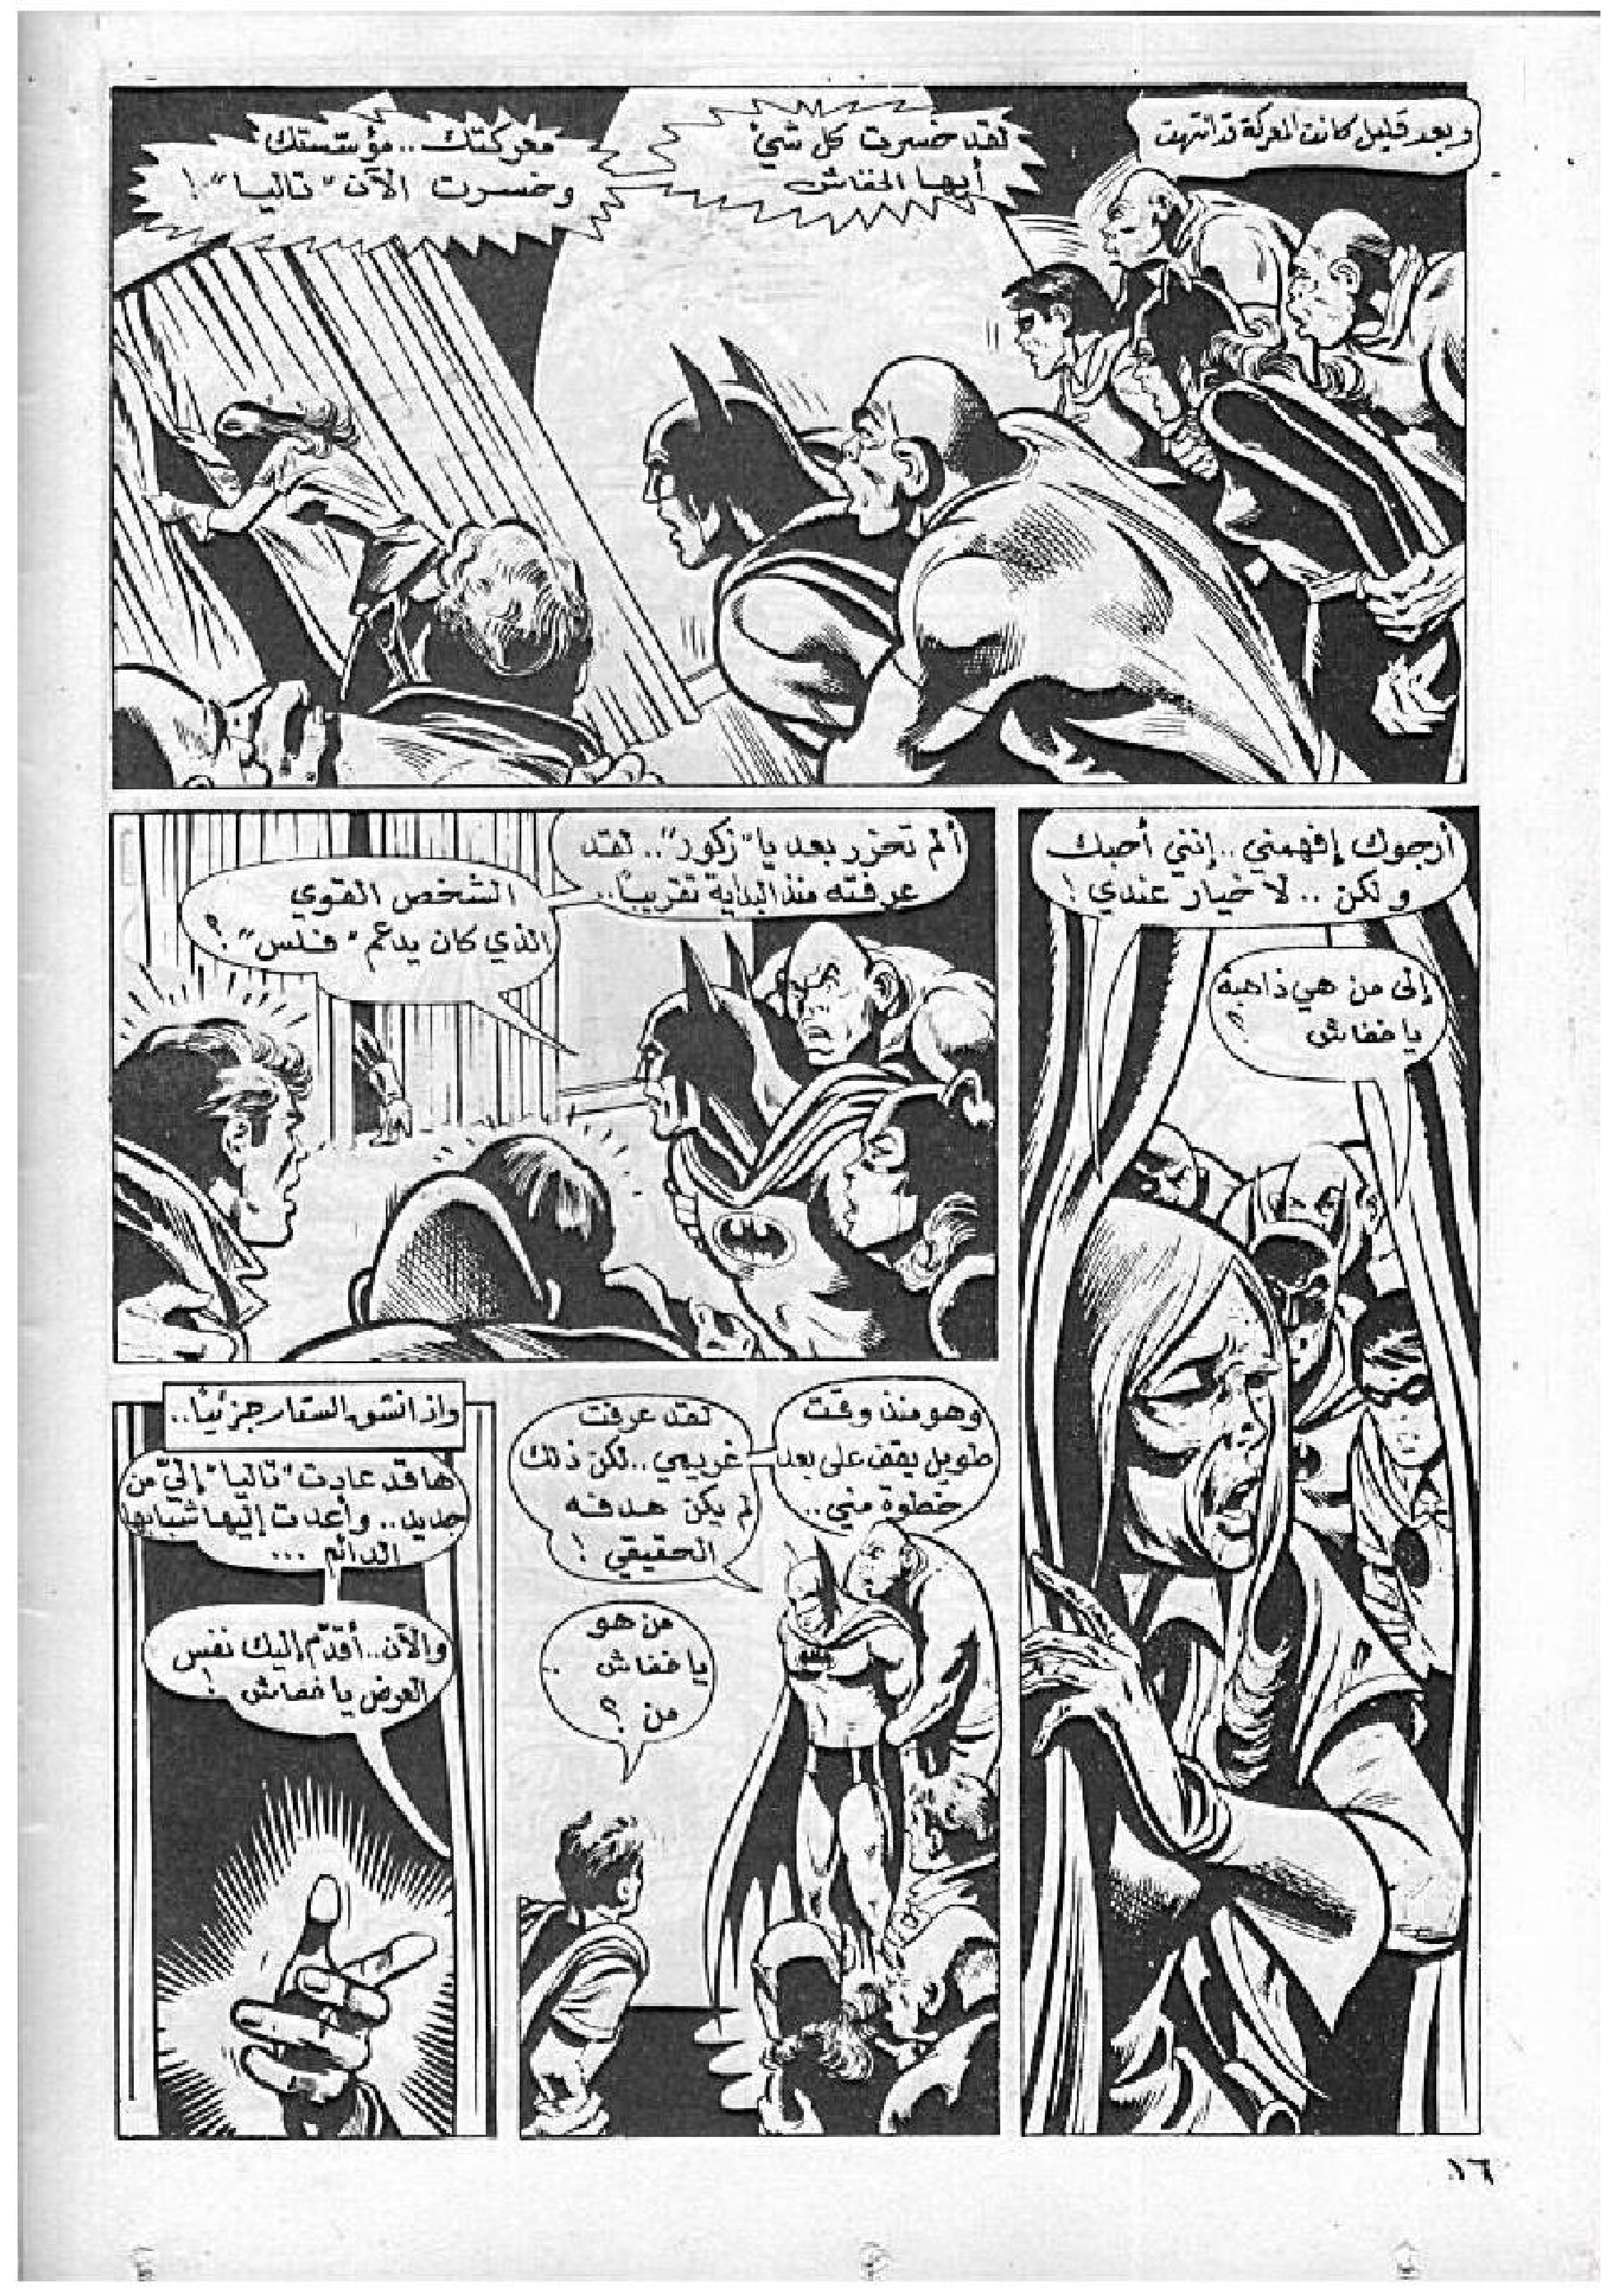 وبعد قليل كانت المعركة قد انتهت
لقد خسرت كل شيء
أيها الخفاش
معركتك.. مؤسّستك
وخسرت الآن "تاليا"!
أرجوك إفهمني.. إنني أحبك
ولكن.. لا خيار عندي!
إلى من هي ذاهبة
يا خفاش؟
ألم تحزر بعد يا "زكور".. لقد
عرفته منذ البداية تقريبًا..
الشخص القوي
الذي كان يدعم "فلس"؟
وهو منذ وقت
طويل يقف على بعد
خطوة مني..
لقد عرفت
غريمي.. لكن ذلك
لم يكن هدفه
الحقيقي!
من هو
يا خفاش..
من؟
واذ انشق الستار جزئيًا..
ها قد عادت "تاليا" إليّ من
جديد.. وأعدت إليها شبابها
الدائم...
والآن.. أقدّم إليك نفس
العرض يا خفاش!
١٦